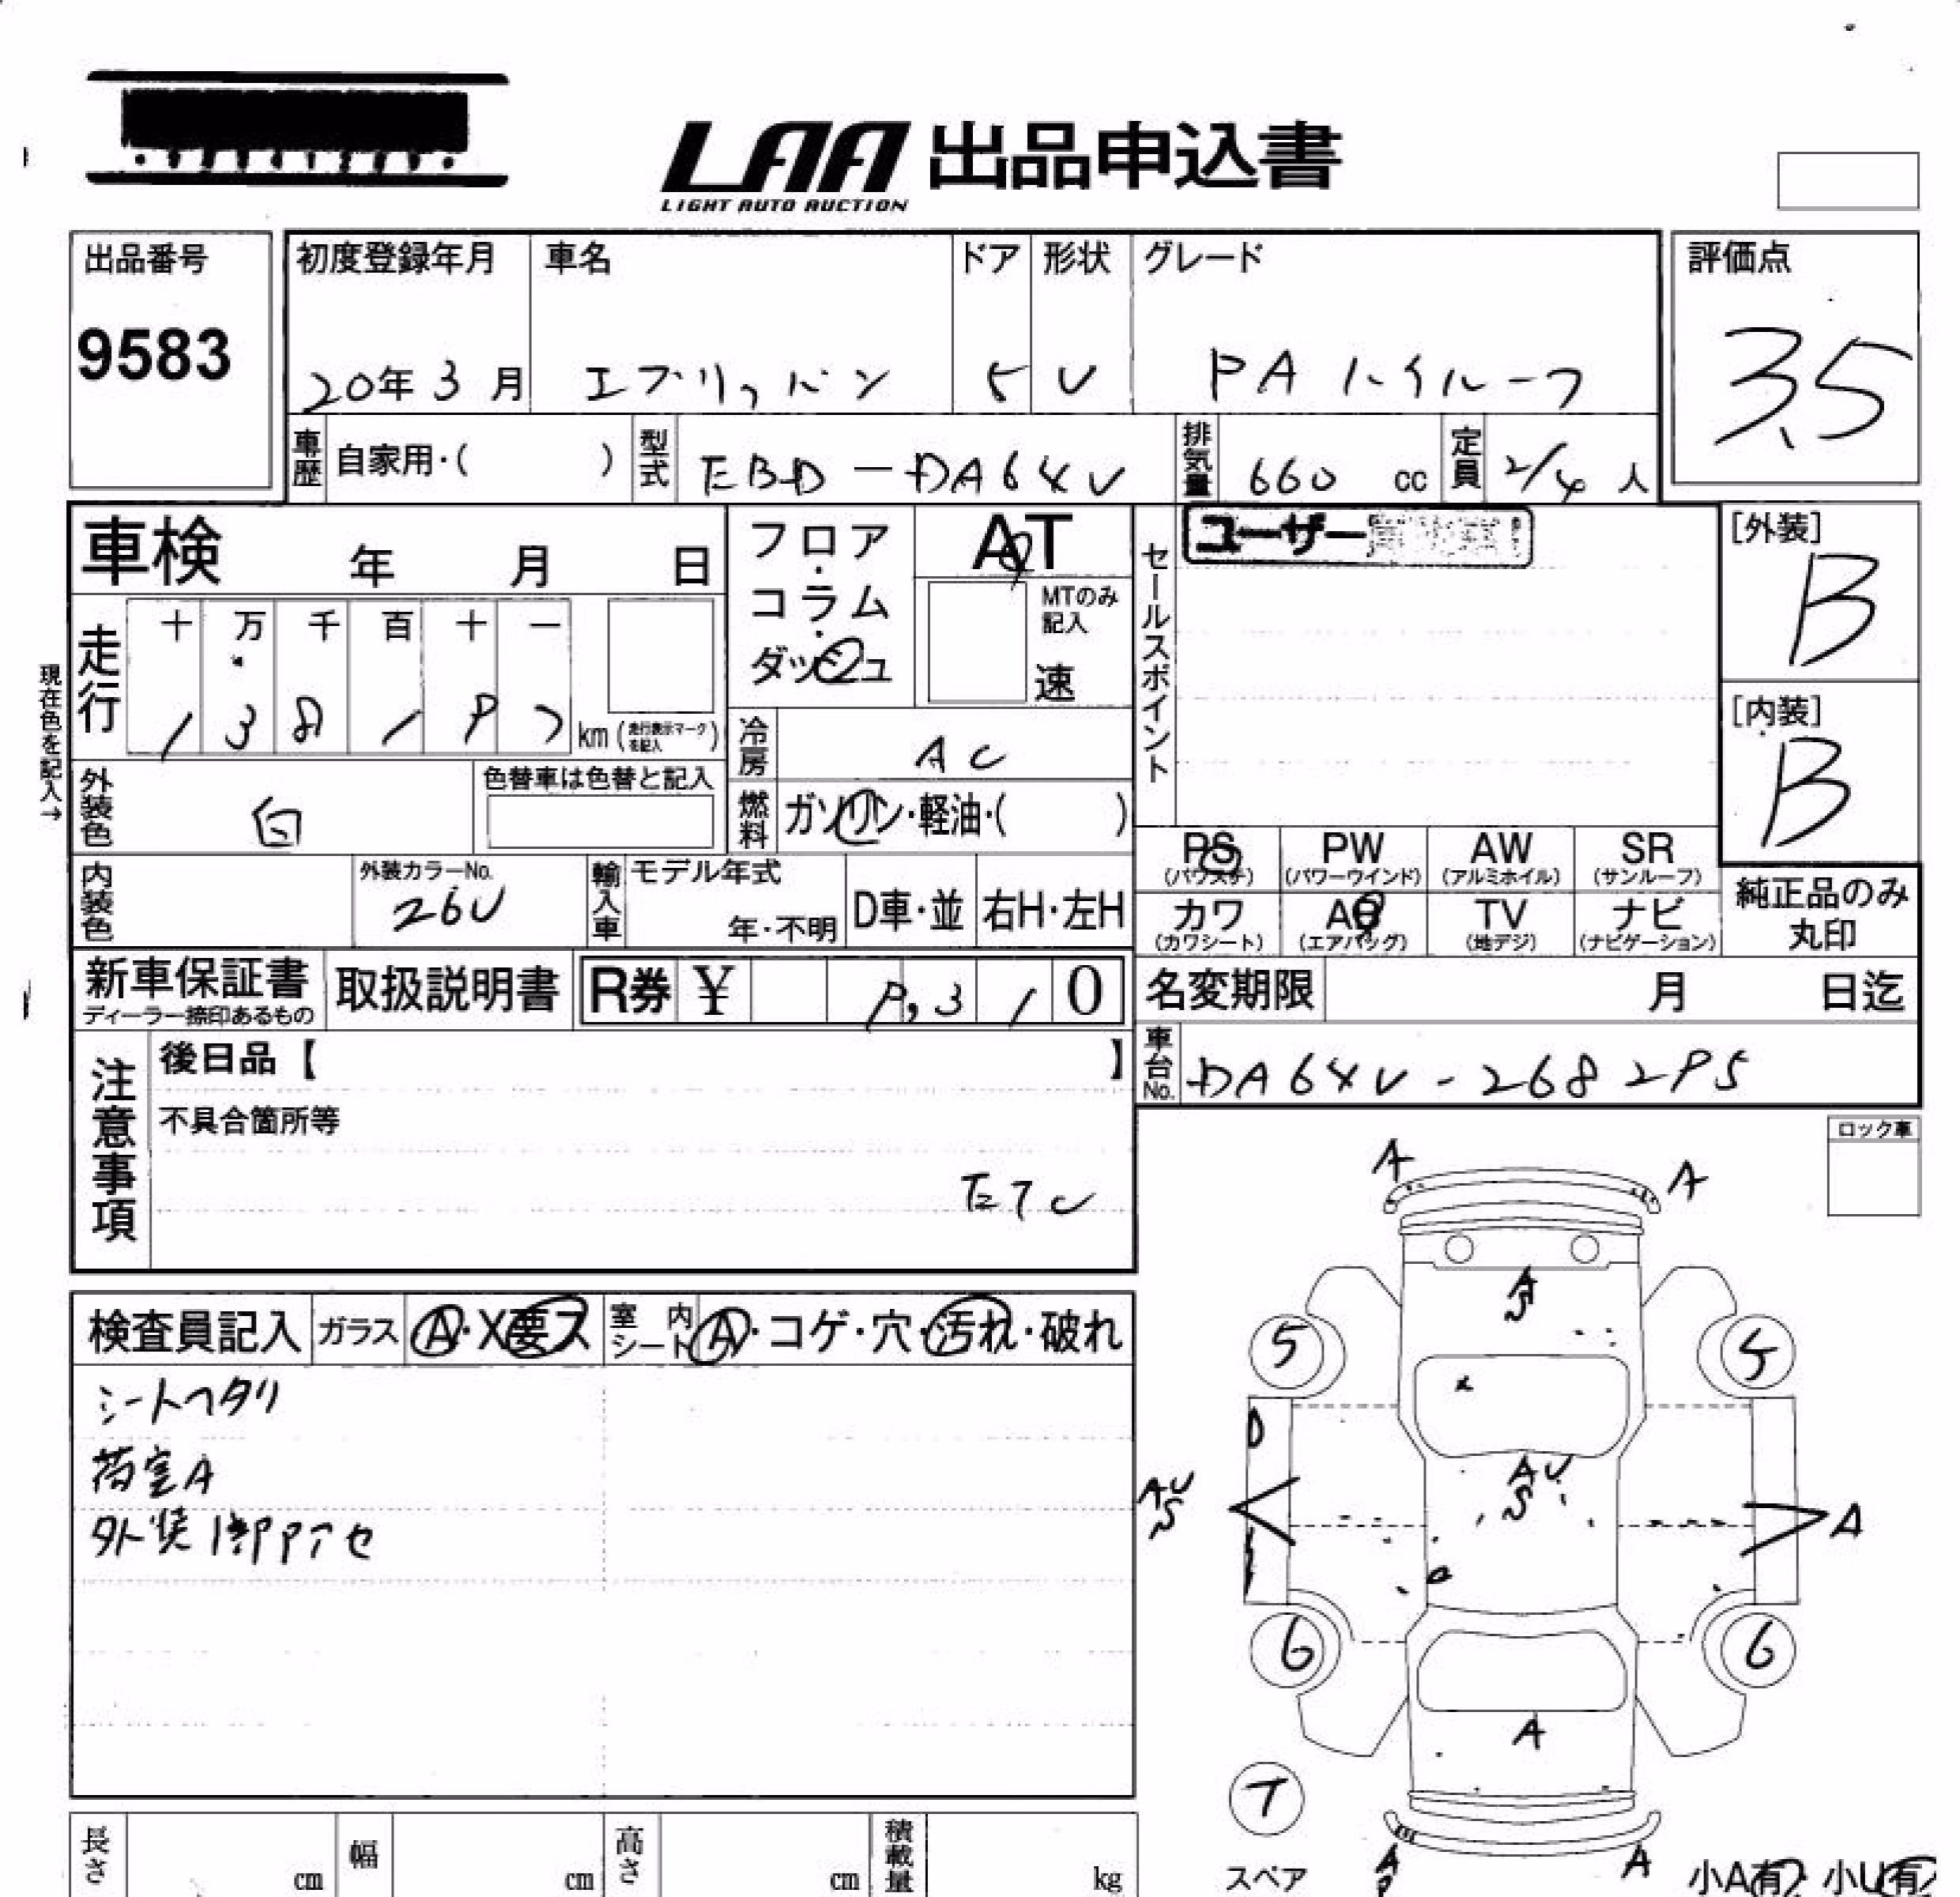 LAA 出品申込書
LIGHT AUTO AUCTION
出品番号
9583
初度登録年月
20年 3月
車名
エブリィバン
ドア
5
形状
V
グレード
PA ハイルーフ
評価点
3.5
車歴 自家用・( )
型式 EBD-DA64V
排気量 660 cc
定員 2/4 人
車検 年 月 日
フロア・コラム・ダッシュ
AT
MTのみ記入
速
セールスポイント
ユーザー
[外装]
B
[内装]
B
現在色を記入→
走行
十 万 千 百 十 一
1 3 8 1 9 7 km (走行表示マークを記入)
冷房 AC
外装色 白
色替車は色替と記入
燃料 ガソリン・軽油・( )
内装色
外装カラーNo.
26U
輸入車
モデル年式
年・不明
D車・並
右H・左H
PS (パワステ)
PW (パワーウインド)
AW (アルミホイル)
SR (サンルーフ)
カワ (カワシート)
AB (エアバッグ)
TV (地デジ)
ナビ (ナビゲーション)
純正品のみ
丸印
新車保証書
ディーラー捺印あるもの
取扱説明書
R券 ¥ 9,310
名変期限 月 日迄
車台No. DA64V-268295
注意事項
後日品【 】
不具合箇所等
ETC
ロック車
検査員記入
ガラス A・X要ス
室内シート A・コゲ・穴・汚れ・破れ
シートヘタリ
荷室A
A
A
A
S
5
5
AU
S
AU
S
A
6
6
A
T
スペア
A
A
小A有 小U有
長さ cm
幅 cm
高さ cm
積載量 kg